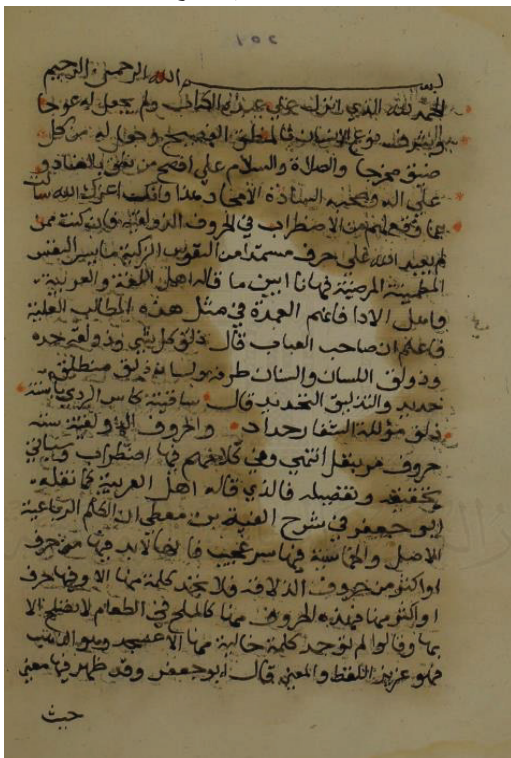 ١٥٢
بسم الله الرحمن الرحيم
الحمد لله الذي انزل على عبده الكتاب ولم يجعل له عوجا
وشرف نوع الانسان بالمنطق الفصيح وجعل له من كل
ضيق مخرجا والصلاة والسلام على افصح من نطق بالضاد و
على اله وصحبه السادة الامجاد وانك اعزك الله سالت
عما وقع لهم من الاضطراب في الحروف الذولقية فان كنت ممن
لم يعبد الله على حرف مستمدا من النفوس الزكية
المطمينة المرضية فهانا ابين ما قاله اهل اللغة والعربية
فاعلم ان العمدة في مثل هذه المطالب العلية
فاعلم ان صاحب العباب قال ذلق كل شي وذولقه حده
وذولق اللسان والسنان طرفه ولسان ذلق منطلق
حديد والتذليق التحديد قال ساقيته كاس الردي باسنة
ذلق مؤللة الشفار حداد والحروف الذولقية ستة
حروف مر بنفل انتهي وفي كلامهم فيها اضطراب وسياتي
تحقيقه وتفصيله فالذي قاله اهل العربية كما نقله
ابو جعفر في شرح الفية بن معطي ان الكلم الرباعية
الاصل والخماسية فيها سر عجيب فانها لابد فيها من حرف
او اكثر من حروف الذلاقة فلا تجد كلمة منها الا وفيها حرف
او اكثر منها فهذه الحروف منها كالملح في الطعام لا تصلح الا
بها وقالوا لم توجد كلمة خالية منها الا عسجد وهو الذهب
فهو عزيز اللفظ والمعنى قال ابو جعفر وقد ظهر فيها معنى
حيث